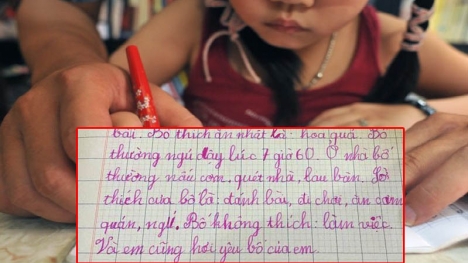 bài. Bố thích ăn nhất là: hoa quả. Bố
thường ngủ dậy lúc 7 giờ 60. Ở nhà bố
thường nấu cơm, quét nhà, lau bàn. Sở
thích của bố là: đánh bài, đi chơi, ăn cơm
quán, ngủ. Bố không thích: làm việc.
Và em cũng hơi yêu bố của em.